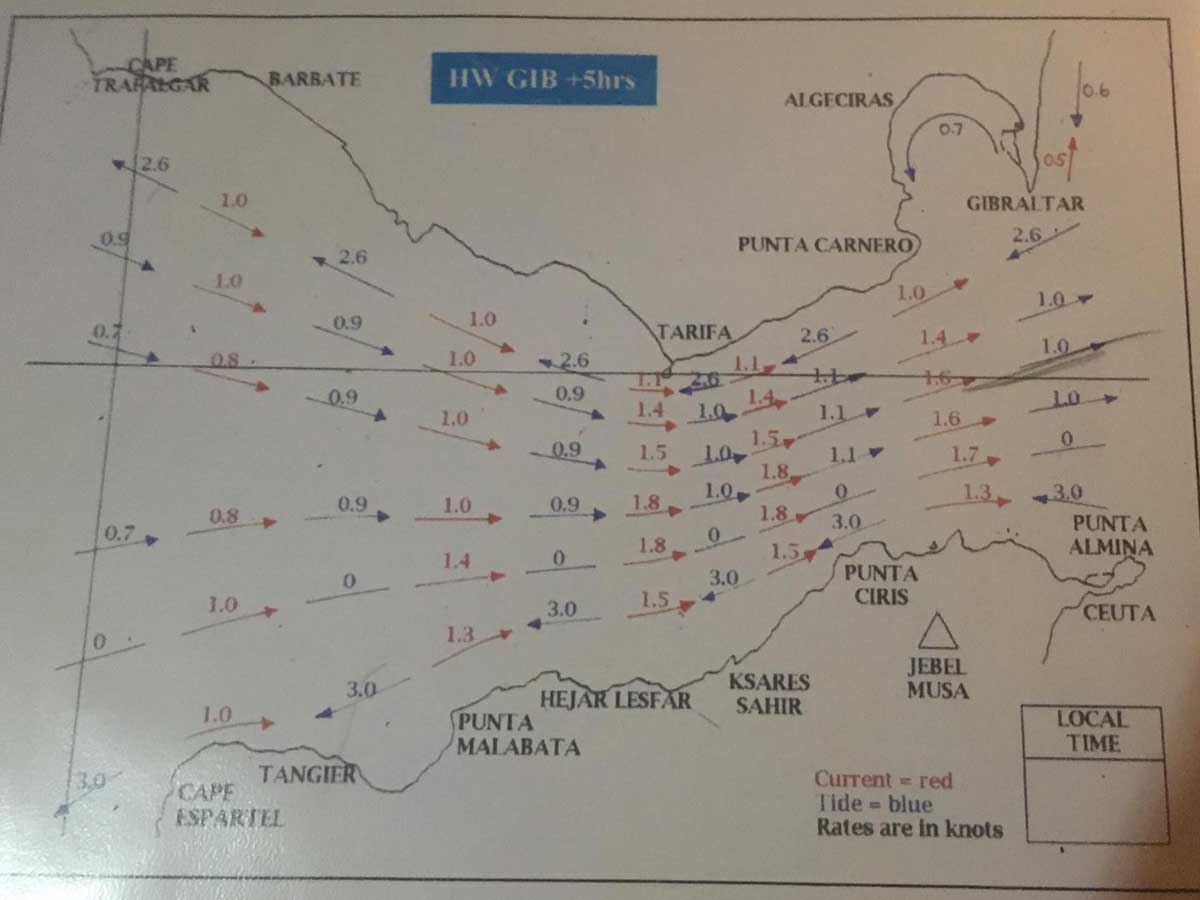 HW GIB +5hrs
CAPE
TRAFALGAR
BARBATE
ALGECIRAS
0.6
0.7
0.5
2.6
1.0
GIBRALTAR
0.9
2.6
PUNTA CARNERO
2.6
1.0
1.0
1.0
0.7
0.9
1.0
TARIFA
2.6
1.4
1.0
0.8
1.0
2.6
1.1
2.6
1.1
1.1
1.6
0.9
0.9
1.4
1.0
1.4
1.1
1.6
1.0
1.0
0.9
1.5
1.0
1.5
1.1
1.7
0
0.7
0.8
0.9
1.0
0.9
1.8
1.0
1.8
0
1.3
3.0
0
1.4
0
1.8
0
1.8
3.0
PUNTA
ALMINA
0
1.0
1.3
3.0
1.5
3.0
1.5
PUNTA
CIRIS
CEUTA
1.0
3.0
HEJAR LESFAR
KSARES
SAHIR
JEBEL
MUSA
PUNTA
MALABATA
LOCAL
TIME
3.0
CAPE
ESPARTEL
TANGIER
Current = red
Tide = blue
Rates are in knots